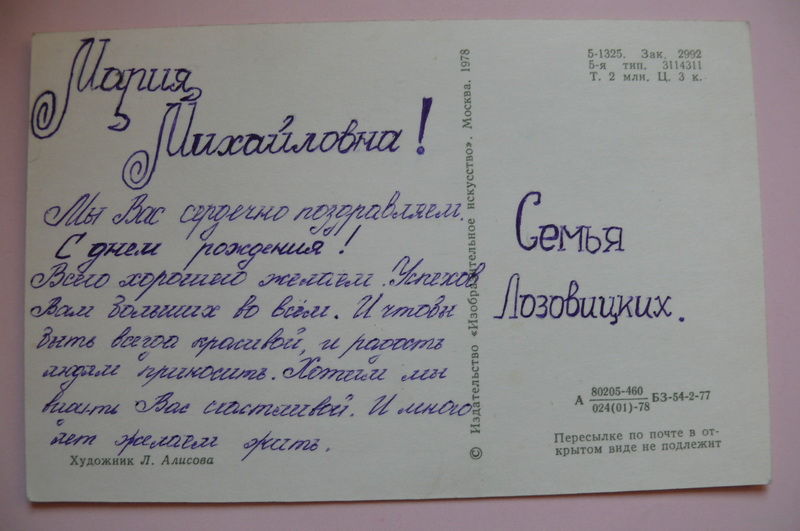 Мария
Михайловна!
Мы Вас сердечно поздравляем.
С днем рождения!
Всего хорошего желаем. Успехов
Вам больших во всём. И чтобы
быть всегда красивой, и радость
людям приносить. Хотим мы
видить Вас счастливой. И много
лет желаем жить.
Художник Л. Алисова
© Издательство «Изобразительное искусство». Москва. 1978
5-1325. Зак. 2992
5-я тип. 3114311
Т. 2 млн. Ц. 3 к.
Семья
Лозовицких.
А 80205-460 БЗ-54-2-77
024(01)-78
Пересылке по почте в от-
крытом виде не подлежит